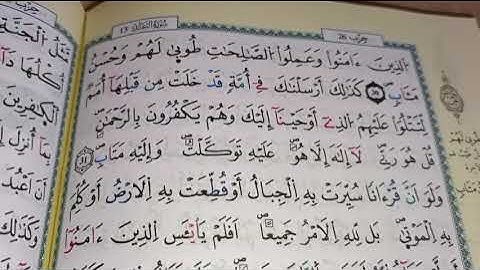 سُورَةُ الرَّعْدِ 13
حزب 26
الذِينَ ءَامَنُواْ وَعَمِلُواْ الصَّٰلِحَٰتِ طُوبِيٰ لَهُمْ وَحُسْنُ
مَـَٔابٍ 30 كَذَٰلِكَ أَرْسَلْنَٰكَ فِے أُمَّةٍ قَدْ خَلَتْ مِن قَبْلِهَا أُمَمٌ
لِّتَتْلُوَاْ عَلَيْهِمُ الذِے أَوْحَيْنَا إِلَيْكَ وَهُمْ يَكْفُرُونَ بِالرَّحْمَٰنِ
قُلْ هُوَ رَبِّے لَا إِلَٰهَ إِلَّا هُوَ عَلَيْهِ تَوَكَّلْتُ وَإِلَيْهِ مَتَابِ 31
وَلَوَ اَنَّ قُرْءَاناً سُيِّرَتْ بِهِ الْجِبَالُ أَوْ قُطِّعَتْ بِهِ الْاَرْضُ أَوْ كُلِّمَ
بِهِ الْمَوْتٰى بَل لِّلهِ الْاَمْرُ جَمِيعاً اَفَلَمْ يَاْيْـَٔسِ الذِينَ ءَامَنُواْ
مَّثَلُ الْجَنَّةِ
أُكُلُهَا
الْكٰفِرِينَ
بِمَا أُنزِلَ
أَنَ اَعْبُدَ
وَكَذَٰلِكَ